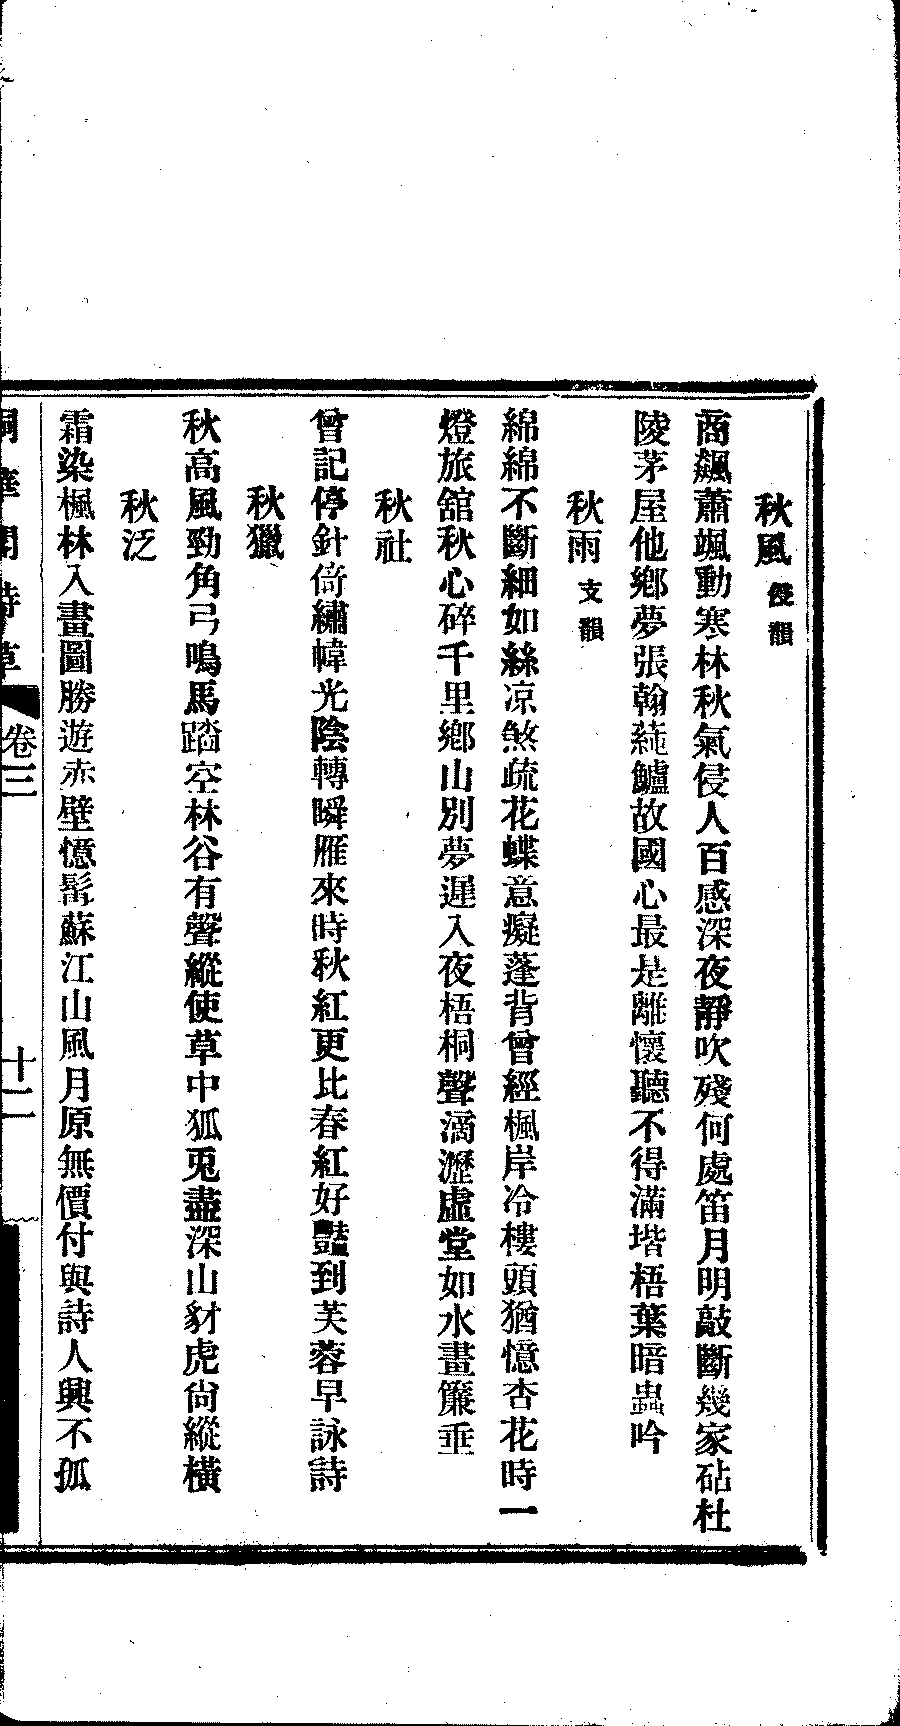 秋風侵韻
商飆蕭颯動寒林秋氣侵人百感深夜靜吹殘何處笛月明敲斷幾家砧杜
陵茅屋他鄉夢張翰蒓鱸故國心最是離懷聽不得滿堦梧葉暗蟲吟
秋雨支韻
綿綿不斷細如絲凉煞疏花蝶意癡蓬背曾經楓岸冷樓頭猶憶杏花時一
燈旅舘秋心碎千里鄉山別夢遲入夜梧桐聲滴瀝虛堂如水畫簾垂
秋社
曾記停針倚繡幃光陰轉瞬雁來時秋紅更比春紅好豔到芙蓉早詠詩
秋獵
秋高風勁角弓鳴馬踏空林谷有聲縱使草中狐兎盡深山豺虎尙縱橫
秋泛
霜染楓林入畫圖勝遊赤壁憶髯蘇江山風月原無價付與詩人興不孤
詩草
卷三
十二